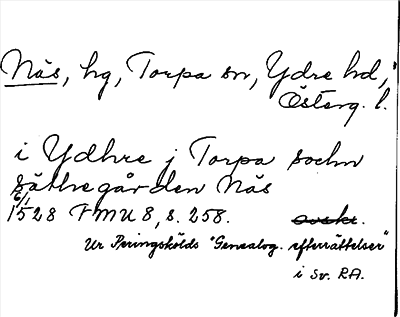 Näs, hg, Torpa sn, Ydre hd,
Österg. l.
i Ydhre j Torpa sochn
säthegården Näs
6/1
1528 FMU 8, s. 258.
Ur Peringskölds "Genealog. efterrättelser"
i Sv. RA.